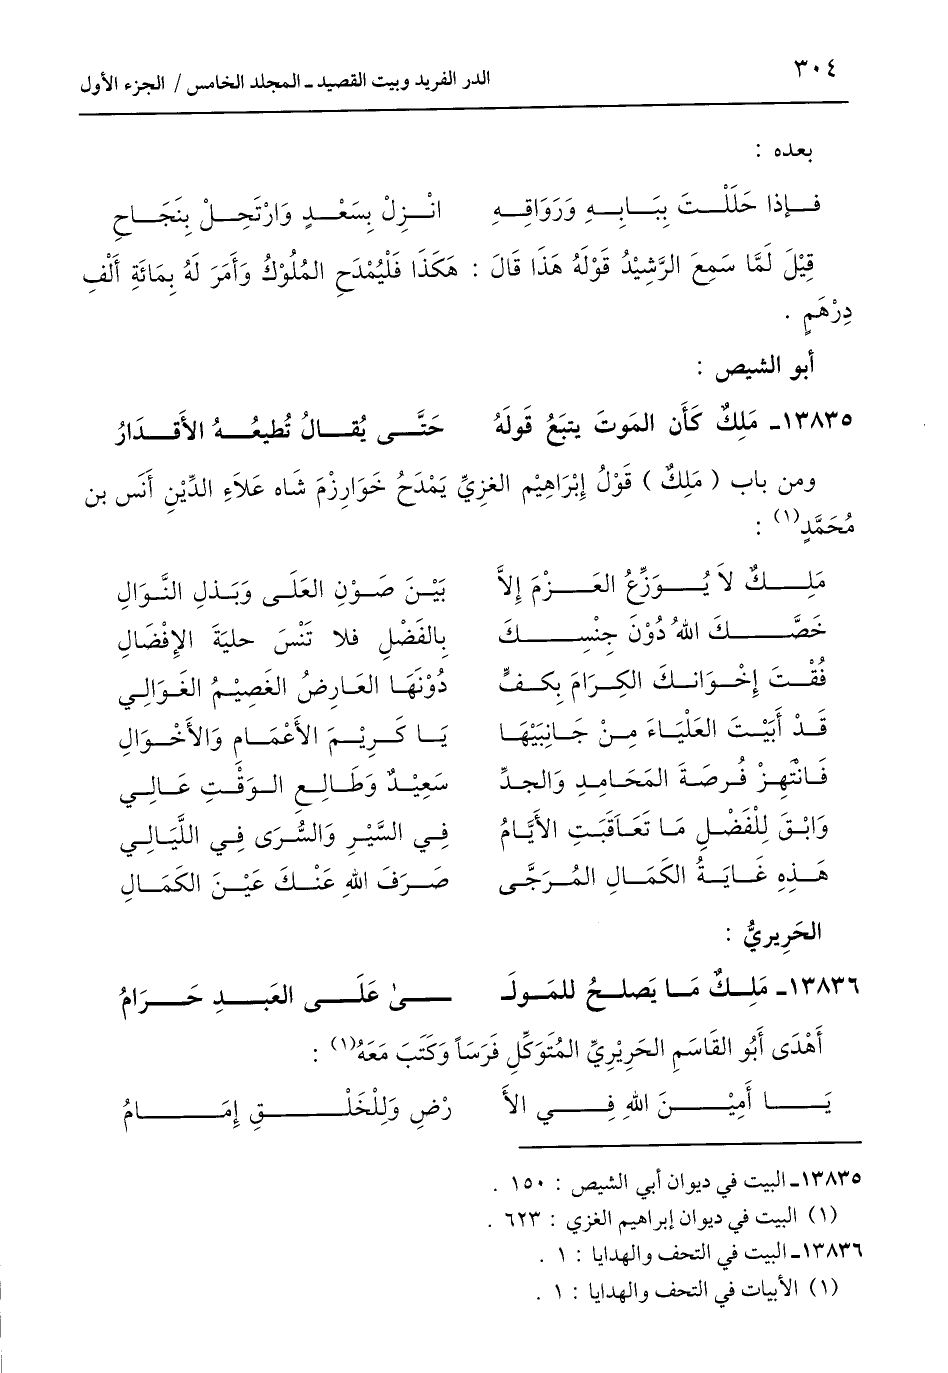 ٣٠٤
الدر الفريد وبيت القصيد ـ المجلد الخامس / الجزء الأول
بعده :
فإذا حَلَلْتَ بِبَابِهِ وَرَوَاقِهِ انْزِلْ بِسَعْدٍ وَارْتَحِلْ بِنَجَاحِ
قِيْلَ لَمَّا سَمِعَ الرَّشِيْدُ قَوْلَهُ هَذَا قَالَ : هَكَذَا فَلْيُمْدَحِ المُلُوْكُ وَأَمَرَ لَهُ بِمَائَةِ أَلْفِ
دِرْهَمٍ .
أبو الشيص :
١٣٨٣٥ـ مَلِكٌ كَأَن الموتَ يتبَعُ قَولَهُ حَتَّى يُقالُ تُطيعُهُ الأَقدَارُ
ومن باب ( مَلِكٌ ) قَوْلُ إِبْرَاهِيْمِ الغزيِّ يَمْدَحُ خَوَارِزْمَ شَاه عَلاَءِ الدِّيْنِ أَنَس بن
مُحَمَّدٍ(١) :
مَلِكٌ لاَ يُوَزِّعُ العَزْمَ إِلاَّ بَيْنَ صَوْنِ العَلَى وَبَذلِ النَّوَالِ
خَصَّكَ اللهُ دُوْنَ جِنْسِكَ بِالفَضْلِ فلا تَنْسَ حليَةَ الإفْضَالِ
فُقْتَ إِخْوَانكَ الكِرَامَ بِكَفٍّ دُوْنَهَا العَارِضُ الغَصِيْمُ الغَوالِي
قَدْ أَبَيْتَ العَلْيَاءَ مِنْ جَانِبَيْهَا يَا كَرِيْمَ الأَعْمَامِ وَالأَخْوَالِ
فَانْتَهِزْ فُرصَةَ المَحَامِدِ وَالجدُّ سَعِيْدٌ وَطَالِعِ الوَقْتِ عَالِي
وَابْقَ لِلْفَضْلِ مَا تَعَاقَبَتِ الأَيَّامُ فِي السَّيْرِ وَالسُّرَى فِي اللَّيَالِي
هَذِهِ غَايَةُ الكَمَالِ المُرَجَّى صَرَفَ اللهِ عَنْكَ عَيْنَ الكَمَالِ
الحَرِيريُّ :
١٣٨٣٦ـ مَلِكٌ مَا يَصلحُ للمَولَـ ـىٰ عَلَى العَبدِ حَرَامُ
أَهْدَى أَبُو القَاسَمِ الحَرِيْرِيِّ المُتَوَكِّلِ فَرَسَاً وَكَتَبَ مَعَهُ(١) :
يَا أَمِيْنَ اللهِ فِي الأَ رْضِ وَلِلْخَلْقِ إِمَامُ
١٣٨٣٥ـ البيت في ديوان أبي الشيص : ١٥٠ .
(١) البيت في ديوان إبراهيم الغزي : ٦٢٣ .
١٣٨٣٦ـ البيت في التحف والهدايا : ١ .
(١) الأبيات في التحف والهدايا : ١ .